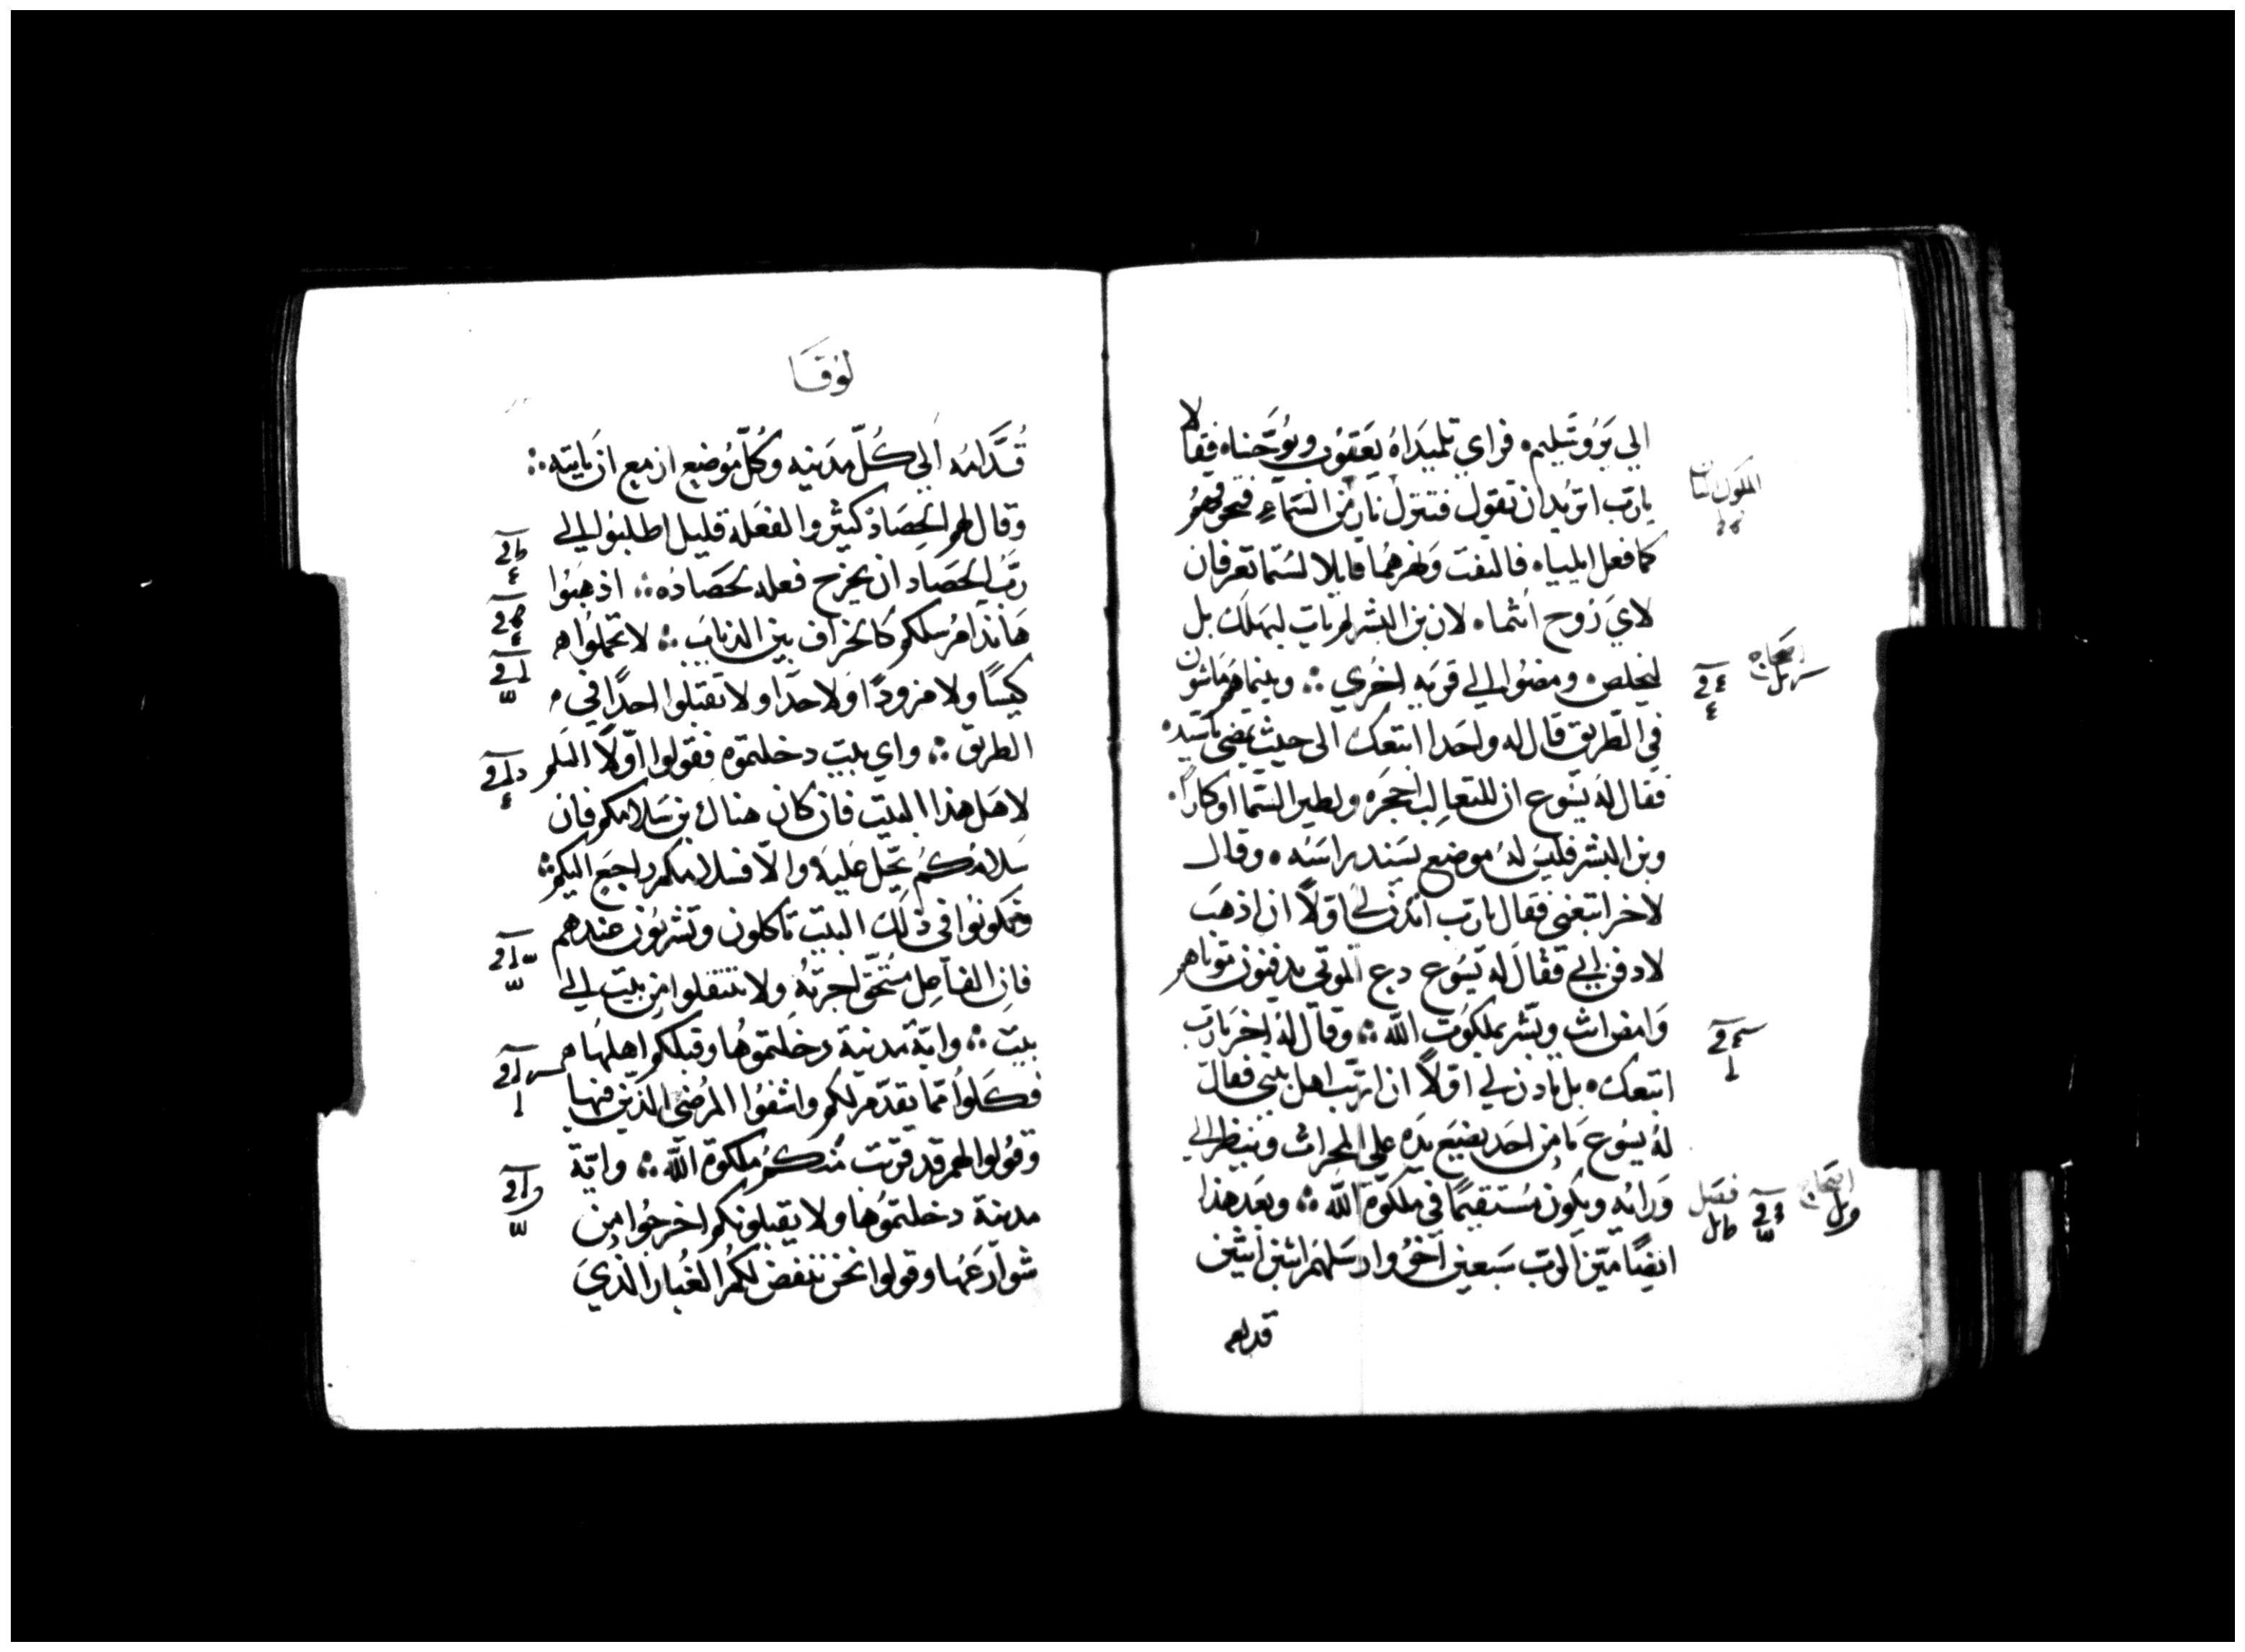 الي يروشليم، فراي تلميذاه يعقوب ويوحناه فقالا
يارب اتريد ان نقول فتنزل نار من السماء فتحرقهم
كما فعل ايلياه فالتفت ونهرهما قايلا لستما تعرفان
لاي روح انتما، لان بن البشر لم يات ليهلك بل
ليخلص، ومضوا الي قريه اخري ⁘ وبينما هم ماشون
في الطريق قال له واحدا اتبعك الى حيث تمضي ياسيده
فقال له يسوع ان للثعالب احجره ولطير السما اوكارا،
وبن البشر فليس له موضع يسند راسه، وقال
لاخر اتبعني فقال يارب ائذن لي اولاً ان اذهب
لادفن ابي فقال له يسوع دع الموتي يدفنون موتاهم
وامض انت وبشر بملكوت الله ⁘ وقال له اخر يارب
اتبعك، بل تاذن لي اولاً ان ارتب اهل بيتي فقال
له يسوع ما من احد يضع يده علي المحراث وينظر الي
ورائه ويكون مستقيمًا في ملكوة الله ⁘ وبعد هذا
ايضًا ميّز الرب سبعين اخر وارسلهم اثنين اثنين
قدامه
فصل
لوقا
قُدَّامه الي كلّ مدينه وكلّ موضع ازمع ان ياتيه ⁘
وقال لهم الحصاد كثير والفعله قليل اطلبوا الي
ربّ الحصاد ان يخرج فعله لحصاده ⁘ اذهبوا
هانذا مرسلكم كالخراف بين الذياب ⁘ لا تحملوا
كيسًا ولا مزودًا ولا حذا ولا تقبلوا احدًا في
الطريق ⁘ واي بيت دخلتموه فقولوا اولاً السلم
لاهل هذا البيت فان كان هناك بن سلامكم فان
سلامكم يحل عليه والّا فسلامكم راجع اليكم ⁘
وتكونوا في ذلك البيت تاكلون وتشربون عندهم
فان الفاعل مستحق اجرته ولا تنتقلوا من بيت الي
بيت ⁘ وايّة مدينة دخلتموها وقبلكم اهلها
فكلوا ممّا يقدم لكم واشفوا المرضي الذين فيها
وقولوا لهم قد قربت منكم ملكوة الله ⁘ وايّة
مدينة دخلتموها ولا يقبلونكم اخرجوا من
شوارعها وقولوا نحن ننفض لكم الغبار الذي